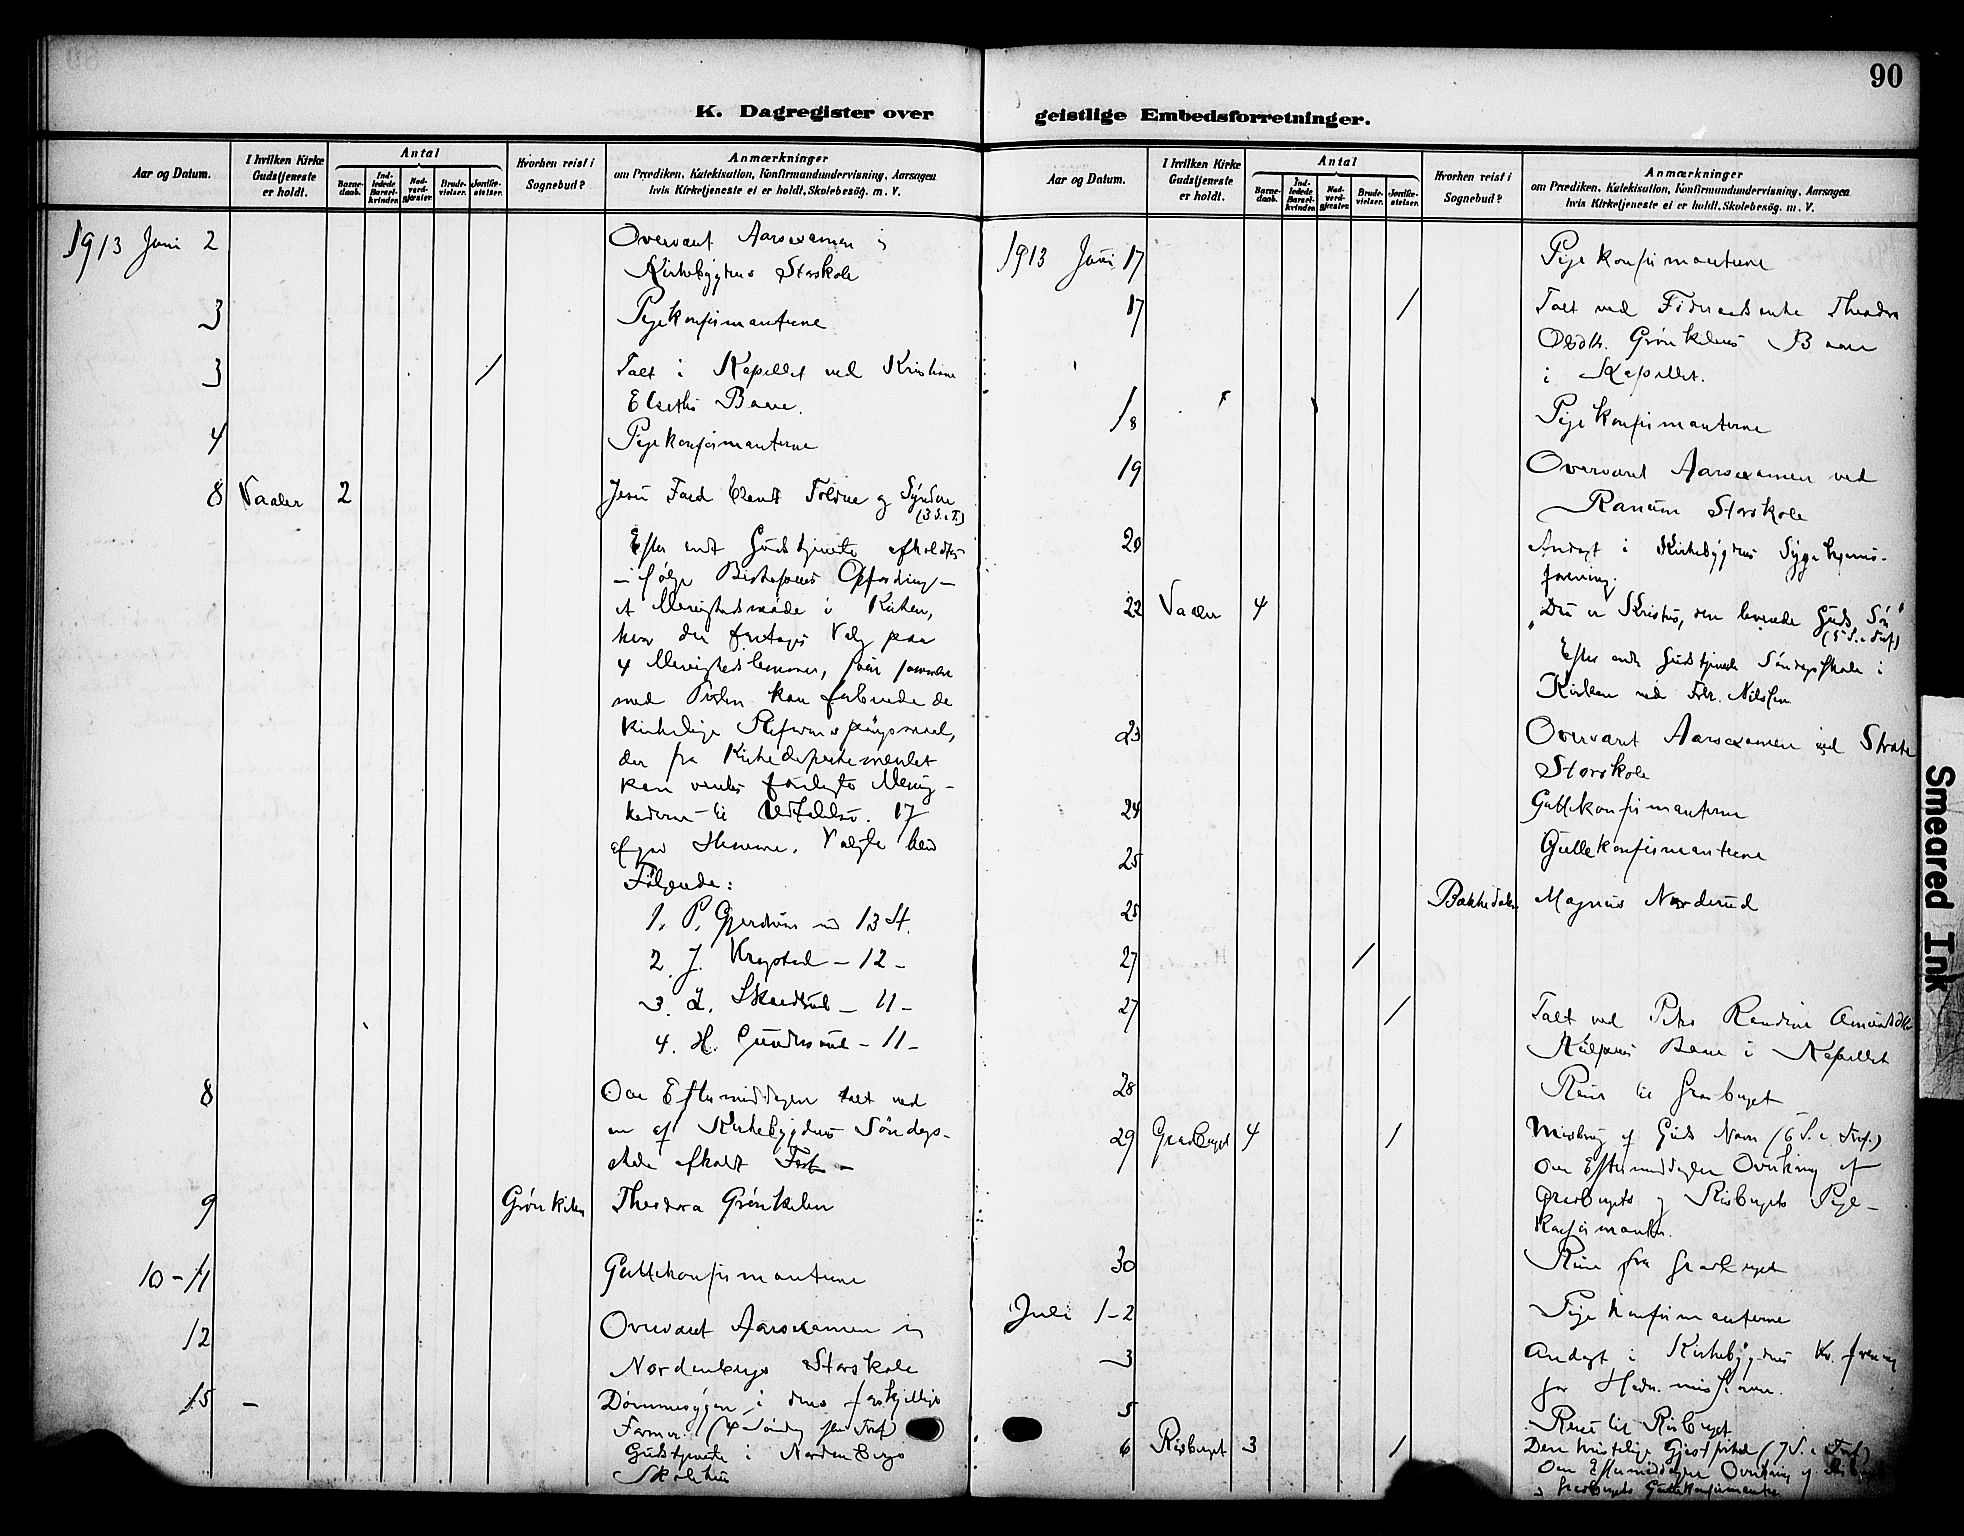 90
K. Dagregister over
geistlige Embedsforretninger.
Aar og Datum.
I hvilken Kirke
Gudstjeneste
er holdt.
Antal
Barne-
daab.
Ind-
ledede
Barsel-
kvinder.
Nad-
verd-
gjæster.
Brude-
vielser.
Jordfæ-
stelser.
Hvorhen reist i
Sognebud?
Anmærkninger
om Prædiken, Katekisation, Konfirmandundervisning, Aarsagen
hvis Kirketjeneste ei er holdt, Skolebesøg. m. V.
1913 Juni 2 Overvaret Aarsexamen i
Kirkebygdens Storskole
3 Pigekonfirmanterne
3 / Talt i Kapellet ved Kristiane
Elseths Baare.
4 Pigekonfirmanterne
8 Vaaler 2 Jesu Færd blandt Toldne og Syndere
(3 S. e. T.)
Efter endt Gudstjeneste afholdtes
– ifølge Biskopens Opfordring –
et Menighedsmøde i Kirken,
hvor der foretages Valg paa
4 Menighedslemmer, som sammen
med Presten kan forberede de
kirkelige Reformspørgsmaal,
der fra Kirkedepartementet
kan ventes forelagte Menig-
hederne til Udtalelse. 17
afgav Stemme. Valgte blev
Følgende:
1. P. Gjerdrum med 13 St.
2. J. Kragstad – 12 –
3. L. – 11 –
4. H. Gundersrud – 11 –
8 Om Eftermiddagen talt ved
en af Kirkebygdens Søndags-
skole afholdt Fest –
9 Grønkilen Theodora Grønkilen
10 – 11 Guttekonfirmanterne
12 Overvaret Aarsexamen i
Nordenbergs Storskole
15 – Dømmesygen i dens forskjellige
Former. (4 Søndag efter Tref.)
Gudstjeneste i Nordenbergs
Skolehus
Aar og Datum.
I hvilken Kirke
Gudstjeneste
er holdt.
Antal
Barne-
daab.
Ind-
ledede
Barsel-
kvinder.
Nad-
verd-
gjæster.
Brude-
vielser.
Jordfæ-
stelser.
Hvorhen reist i
Sognebud?
Anmærkninger
om Prædiken, Katekisation, Konfirmandundervisning, Aarsagen
hvis Kirketjeneste ei er holdt, Skolebesøg. m. V.
1913 Juni 17 Pigekonfirmanterne
17 / Talt ved Føderaadsenke Theodora
Grønkilens Baare
i Kapellet.
18 Pigekonfirmanterne
19 Overvaret Aarsexamen ved
Ranum Storskole
20 Andagt i Kirkebygdens Sygehjems-
forening.
22 Vaaler 4 „Du er Kristus, den levende Guds Søn"
(5 S. e. Tref)
Efter endt Gudstjeneste Søndagsskole i
Kirken ved Fdr. Nilssen
23 Overvaret Aarsexamen ved Strate
Storskole
24 Guttekonfirmanterne
25 Guttekonfirmanterne
25 Bakkedalen Magnus Norderud
27 /
27 / Talt ved Petra Randine Amundsdtr
Baare i Kapellet
28 Reise til Grasberget
29 Grasberget 4 / Misbrug af Guds Navn (6 S. e. Tref.)
Om Eftermiddagen Overhøring af
Grasbergets og Risbergets Pige-
konfirmanter.
30 Reise fra Grasberget
Juli 1–2 Pigekonfirmanterne
3 Andagt i Kirkebygdens Kv. forening
for Hedn. missionen.
5 Reise til Risberget
6 Risberget 3 / Den kristelige (7 S. e. Tref)
Om Eftermiddagen Overhøring af
Grasbergets Guttekonfirmanter
Smeared Ink